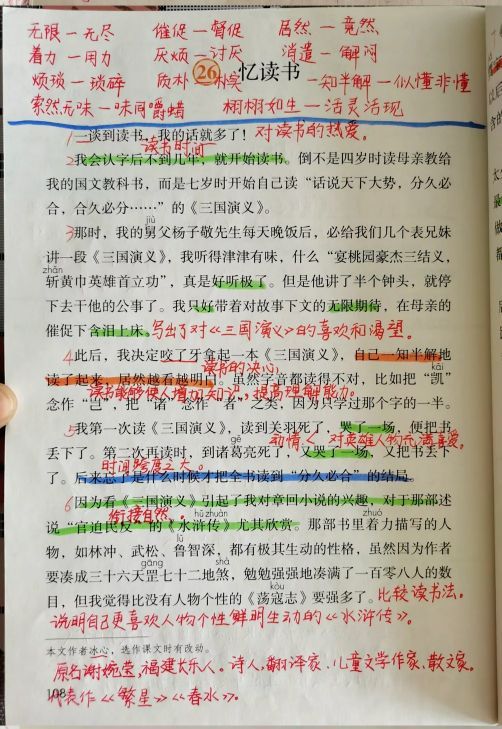 无限—无尽 催促—督促 居然—竟然
着力—用力 厌烦—讨厌 消遣—解闷
烦琐—琐碎 质朴—朴实 一知半解—似懂非懂
索然无味—味同嚼蜡 栩栩如生—活灵活现
26 忆读书
1一谈到读书，我的话就多了！对读书的热爱。
读书时间
2我会认字后不到几年，就开始读书。倒不是四岁时读母亲教给
我的国文教科书，而是七岁时开始自己读“话说天下大势，分久必
合，合久必分……”的《三国演义》。
jiù
3那时，我的舅父杨子敬先生每天晚饭后，必给我们几个表兄妹
讲一段《三国演义》，我听得津津有味，什么“宴桃园豪杰三结义，
zhǎn
斩黄巾英雄首立功”，真是好听极了。但是他讲了半个钟头，就停
下去干他的公事了。我只好带着对故事下文的无限期待，在母亲的
催促下含泪上床。写出了对《三国演义》的喜欢和渴望。
4此后，我决定咬了牙拿起一本《三国演义》，自己一知半解地
读书的决心， kǎi
读了起来，居然越看越明白。虽然字音都读得不对，比如把“凯”
读书能够使人增加知识，提高理解能力。
念作“岂”，把“诸”念作“者”之类，因为只学过那个字的一半。
5我第一次读《三国演义》，读到关羽死了，哭了一场，便把书
gě 动情 对英雄人物充满喜爱。
丢下了。第二次再读时，到诸葛亮死了，又哭了一场，又把书丢下
时间跨度之大。
了。后来忘了是什么时候才把全书读到“分久必合”的结局。
6因为看《三国演义》引起了我对章回小说的兴趣，对于那部述
衔接自然。 hǔ zhuàn
说“官迫民反”的《水浒传》尤其欣赏。那部书里着力描写的人
lǔ
物，如林冲、武松、鲁智深，都有极其生动的性格，虽然因为作者
gāng shà
要凑成三十六天罡七十二地煞，勉勉强强地凑满了一百零八人的数
kòu
目，但我觉得比没有人物个性的《荡寇志》要强多了。比较读书法。
说明自己更喜欢人物个性鲜明生动的《水浒传》。
本文作者冰心，选作课文时有改动。
原名谢婉莹，福建长乐人。诗人，翻译家、儿童文学作家、散文家。
108 代表作《繁星》《春水》。